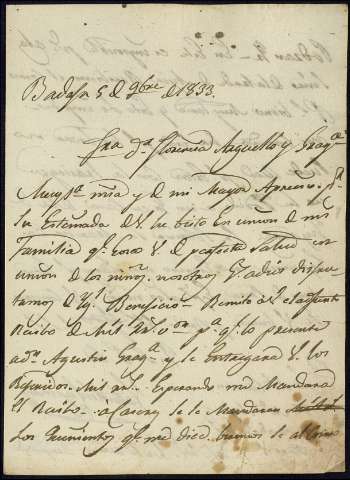 Badajz 5 de 9bre de 1833
Sra Da. Florencia Arguello y Graga
Muy Sra mia y de mi Mayor Aprecio. Pr
la Estimada de V. he bisto En union de mi
Familia qe. goza V. de perfecta Salud con
union de los niños. nosotros Gs. a dios disfru
tamos de Ygl. Beneficio - Remito a V. el adjunto
Recibo de Mil Rs. von pa. qe. lo presente
a dn Agustin Graga y le Entregara V. los
Referidos Mil rs. Esperando me Mandara
El Recibo. a Casery se le Mandaran
Los Quinientos qe. me dice